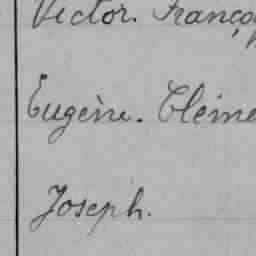 Victor. Franço
Eugène. Cléme
Joseph.